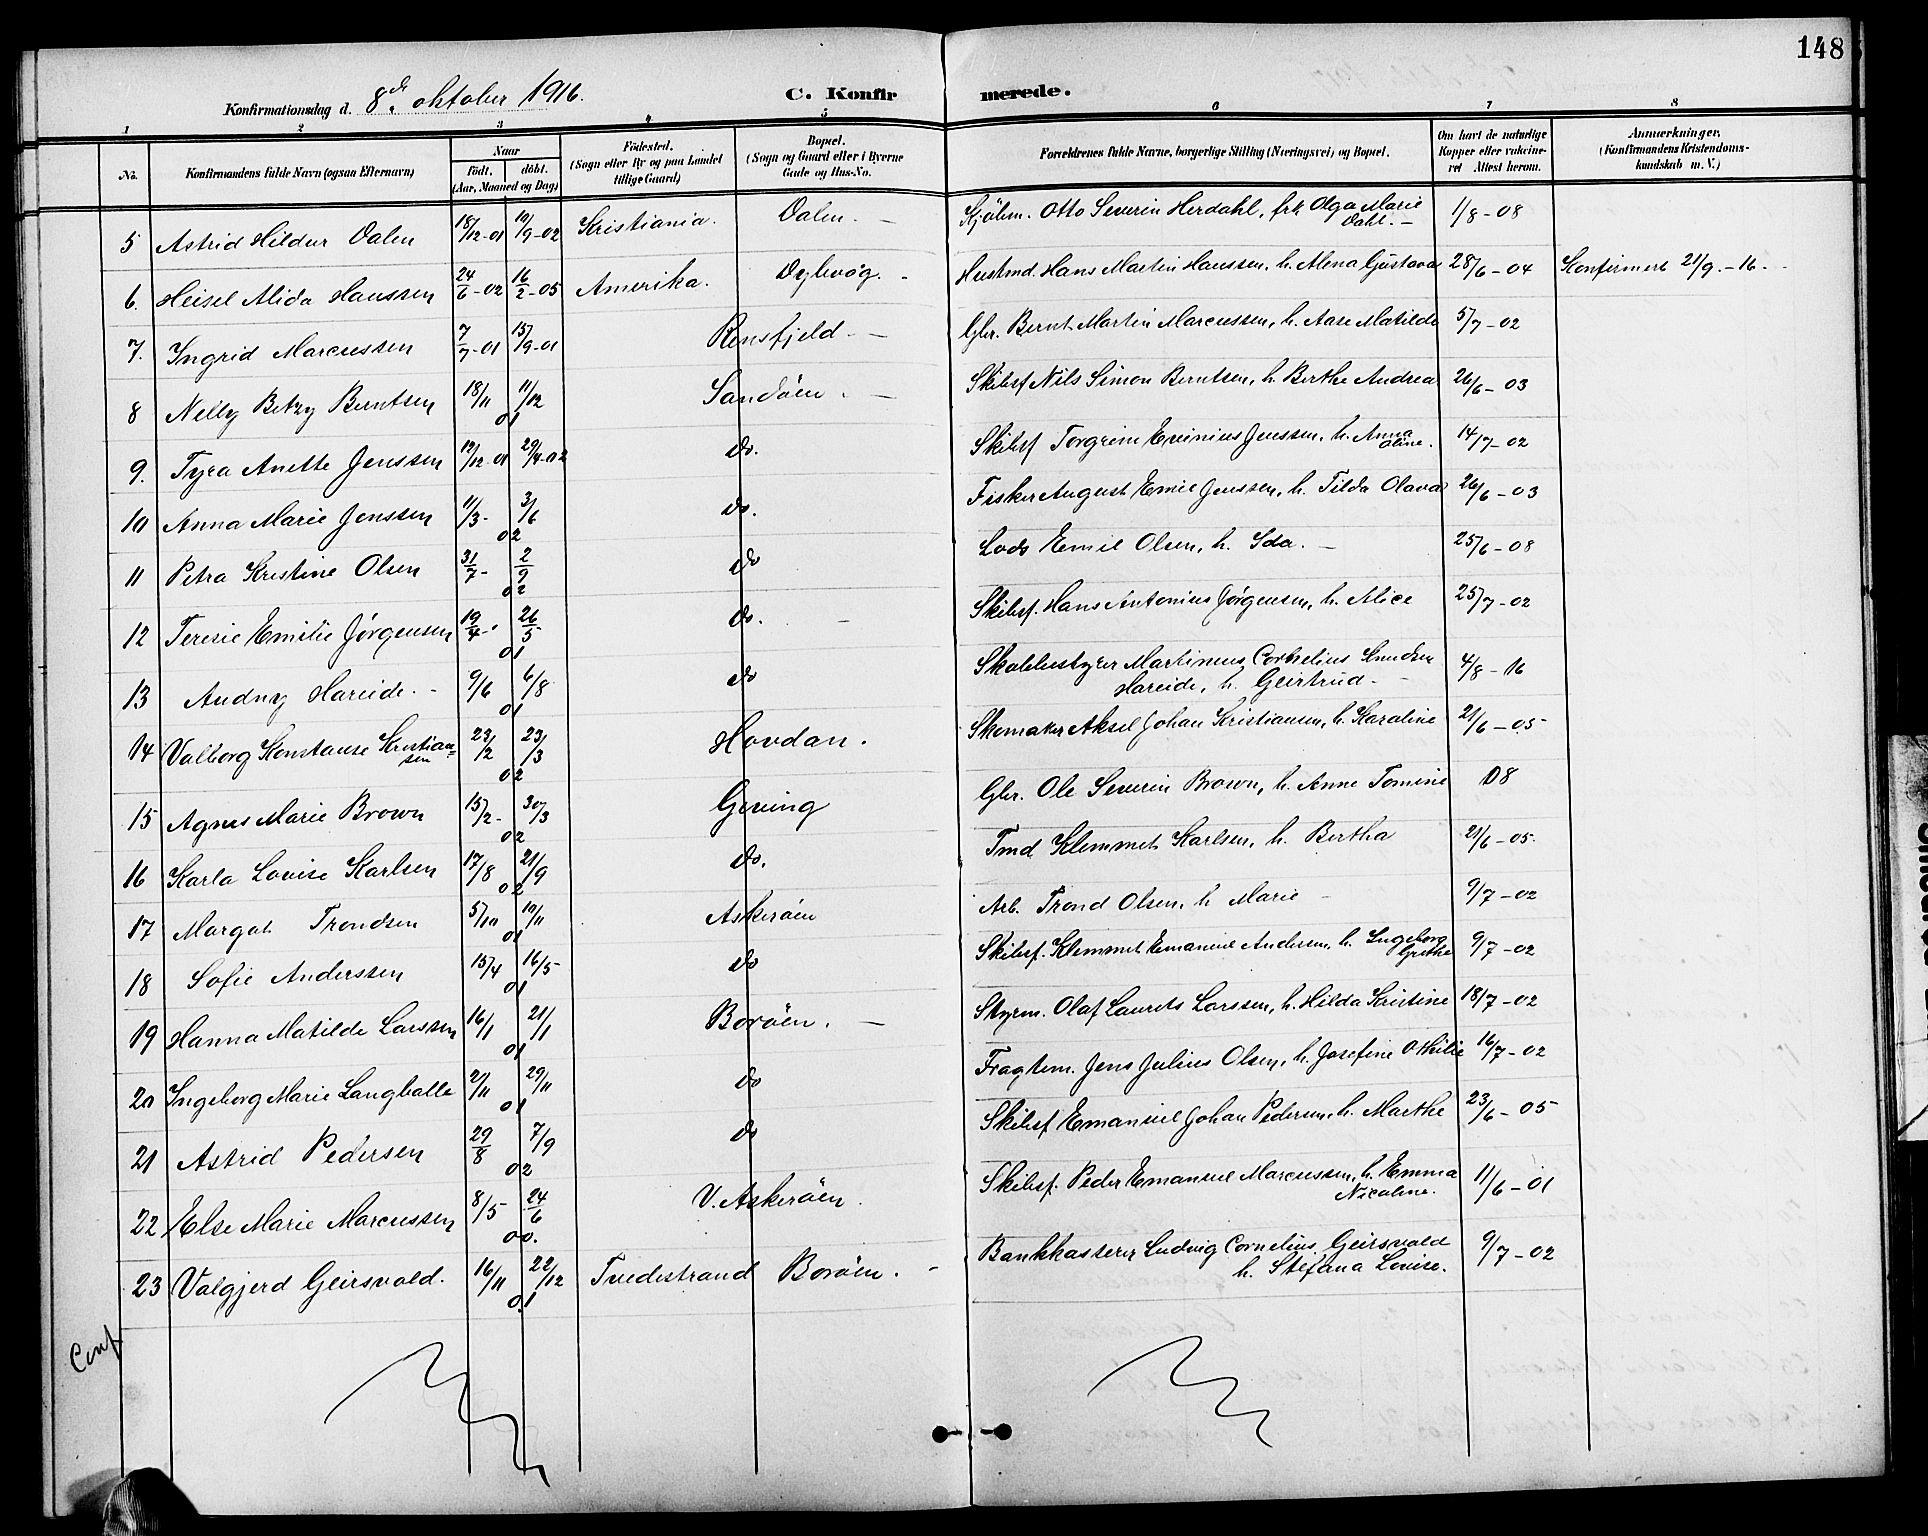 148
Konfirmationsdag d. 8de oktober 1916.
C. Konfirmerede.
1 2 3 4 5 6 7 8
No.
Konfirmandens fulde Navn (ogsaa Efternavn)
Naar
født, døbt.
(Aar, Maaned og Dag)
Fødested.
(Sogn eller By og paa Landet
tillige Gaard)
Bopæl.
(Sogn og Gaard eller i Byerne
Gade og Hus-No.
Forældrenes fulde Navne, borgerlige Stilling (Næringsvei) og Bopæl.
Om havt de naturlige
Kopper eller vaccine-
ret Attest herom.
Anmærkninger.
(Konfirmandens Kristendoms-
kundskab m. V.)
5 Astrid Hildur Dalen 18/12-01 19/9-02 Kristiania. Dalen. — Kjøbm. Otto Severin Herdahl, frk Olga Marie Dahl. — 1/8-08
6. Heisel Alida Hanssen 24/6-02 16/2-05 Amerika. Dybvøg. - Hustmd. Hans Martin Hanssen, h. Alena Gustava 28/6-04 Konfirmert 21/9.-16.
7. Ingrid Marcussen 7/7-01 15/9-01 Rensfjeld — Gbr. Bernt Martin Marcussen, h. Aase Matilde 5/7-02
8 Nelly Betzy Berntsen 18/11 11/12 01 Sandøen. — Skibsf Nils Simon Berntsen, h Berthe Andrea 26/6-03
9. Tyra Anette Jenssen 12/12-01 29/4-02 do. Skibsf Torgrim Evinius Jenssen, h. Anna Oline. 14/7-02
10 Anna Marie Jenssen 11/3- 3/6 02 do. Fisker August Emil Jenssen, h. Tilda Olava 26/6-03
11 Petra Kristine Olsen 31/7- 2/9 02 do Lods Emil Olsen, h. Ida. — 25/6-08
12 Teresie Emilie Jørgensen 19/4- 26/5 01 do. Skibsf. Hans Antonius Jørgensen, h. Alice 25/7-02
13 Audny Hareide. - 9/6 6/8 01 do Skolebestyrer Martinius Cornelius Knudsen Hareide, h. Geirtrud - 4/8-16
14 Valborg Konstanse Kristiansen 23/2 23/3 02 Hovdan. Skomaker Aksel Johan Kristiansen, h. Karoline 21/6-05
15 Agnes Marie Brown 15/2- 30/3 02 Geving Gbr. Ole Severin Brown, h. Anne Tomine 08
16 Karla Lovise Karlsen 17/8 21/9 02 do. Tmd Klemmet Karlsen, h. Bertha 21/6-05.
17 Margot Trondsen 5/10 10/11 01 Askerøen Arb. Trond Olsen, h Marie - 9/7-02
18 Sofie Anderssen 15/4 16/5 01 do Skibsf. Klemmet Emanuel Andersen, h. Ingeborg Grethe 9/7-02
19 Hanna Matilde Larssen 16/1 21/1 01 Borøen. — Styrm. Olaf Laurits Larssen, h. Hilda Kristine 18/7-02
20 Ingeborg Marie Langballe 2/11 29/11 01 do Fragtem. Jens Julius Olsen, h. Josefine Othilie 16/7-02
21 Astrid Pedersen 29/8 7/9 02 do Skibsf Emanuel Johan Pedersen, h. Marthe 23/6-05
22 Else Marie Marcussen 8/5 24/6 00. V. Askerøen. Skibsf. Peder Emanuel Marcussen, h. Emma Nicoline. 11/6-01
23 Valgjerd Geirsvold. 16/11 22/12 01 Tvedestrand Borøen. - Bankkasserer Ludvig Cornelius Geirsvold h. Stefana Lovise. 9/7-02
Conf